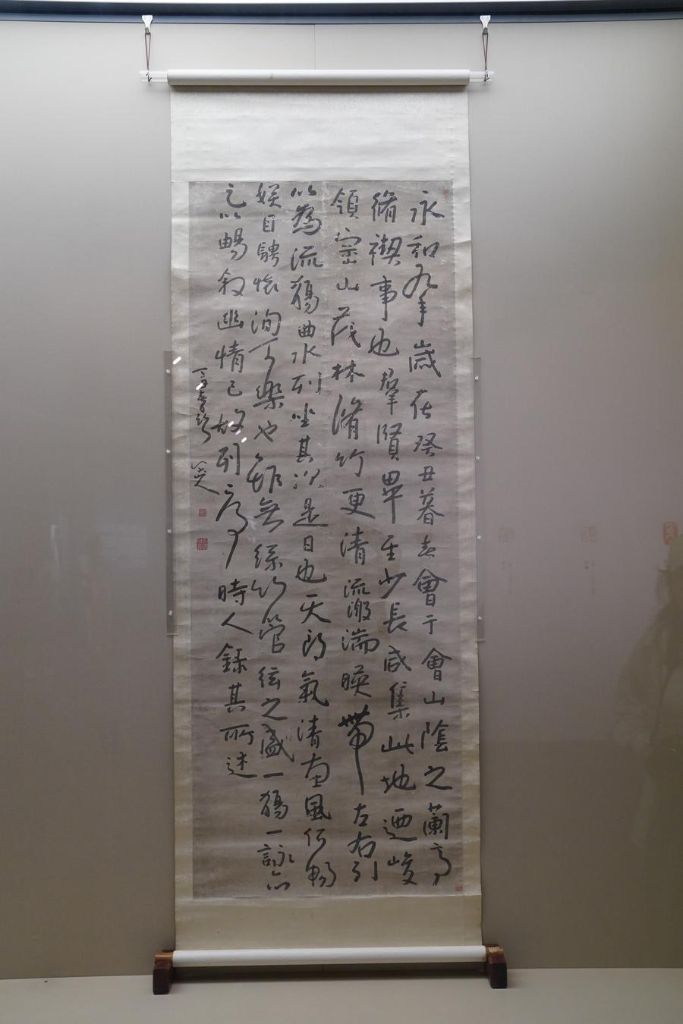 永和九年歲在癸丑暮春會于會山陰之蘭亭
脩禊事也羣賢畢至少長咸集此地迺峻
領崇山茂林脩竹更清流激湍暎帶左右引
以為流觴曲水列坐其次是日也天朗氣清惠風和暢
娛目騁懷洵可樂也雖無絲竹管絃之盛一觴一詠亦
足以暢敘幽情已故列序時人錄其所述
八大山人